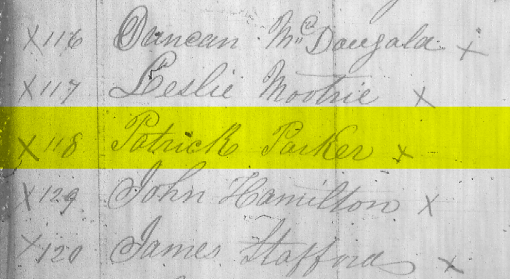 X 116 Duncan McDougald x
X 117 Leslie Mootrie x
X 118 Patrick Parker x
X 129 John Hamilton x
X 120 James Stafford x